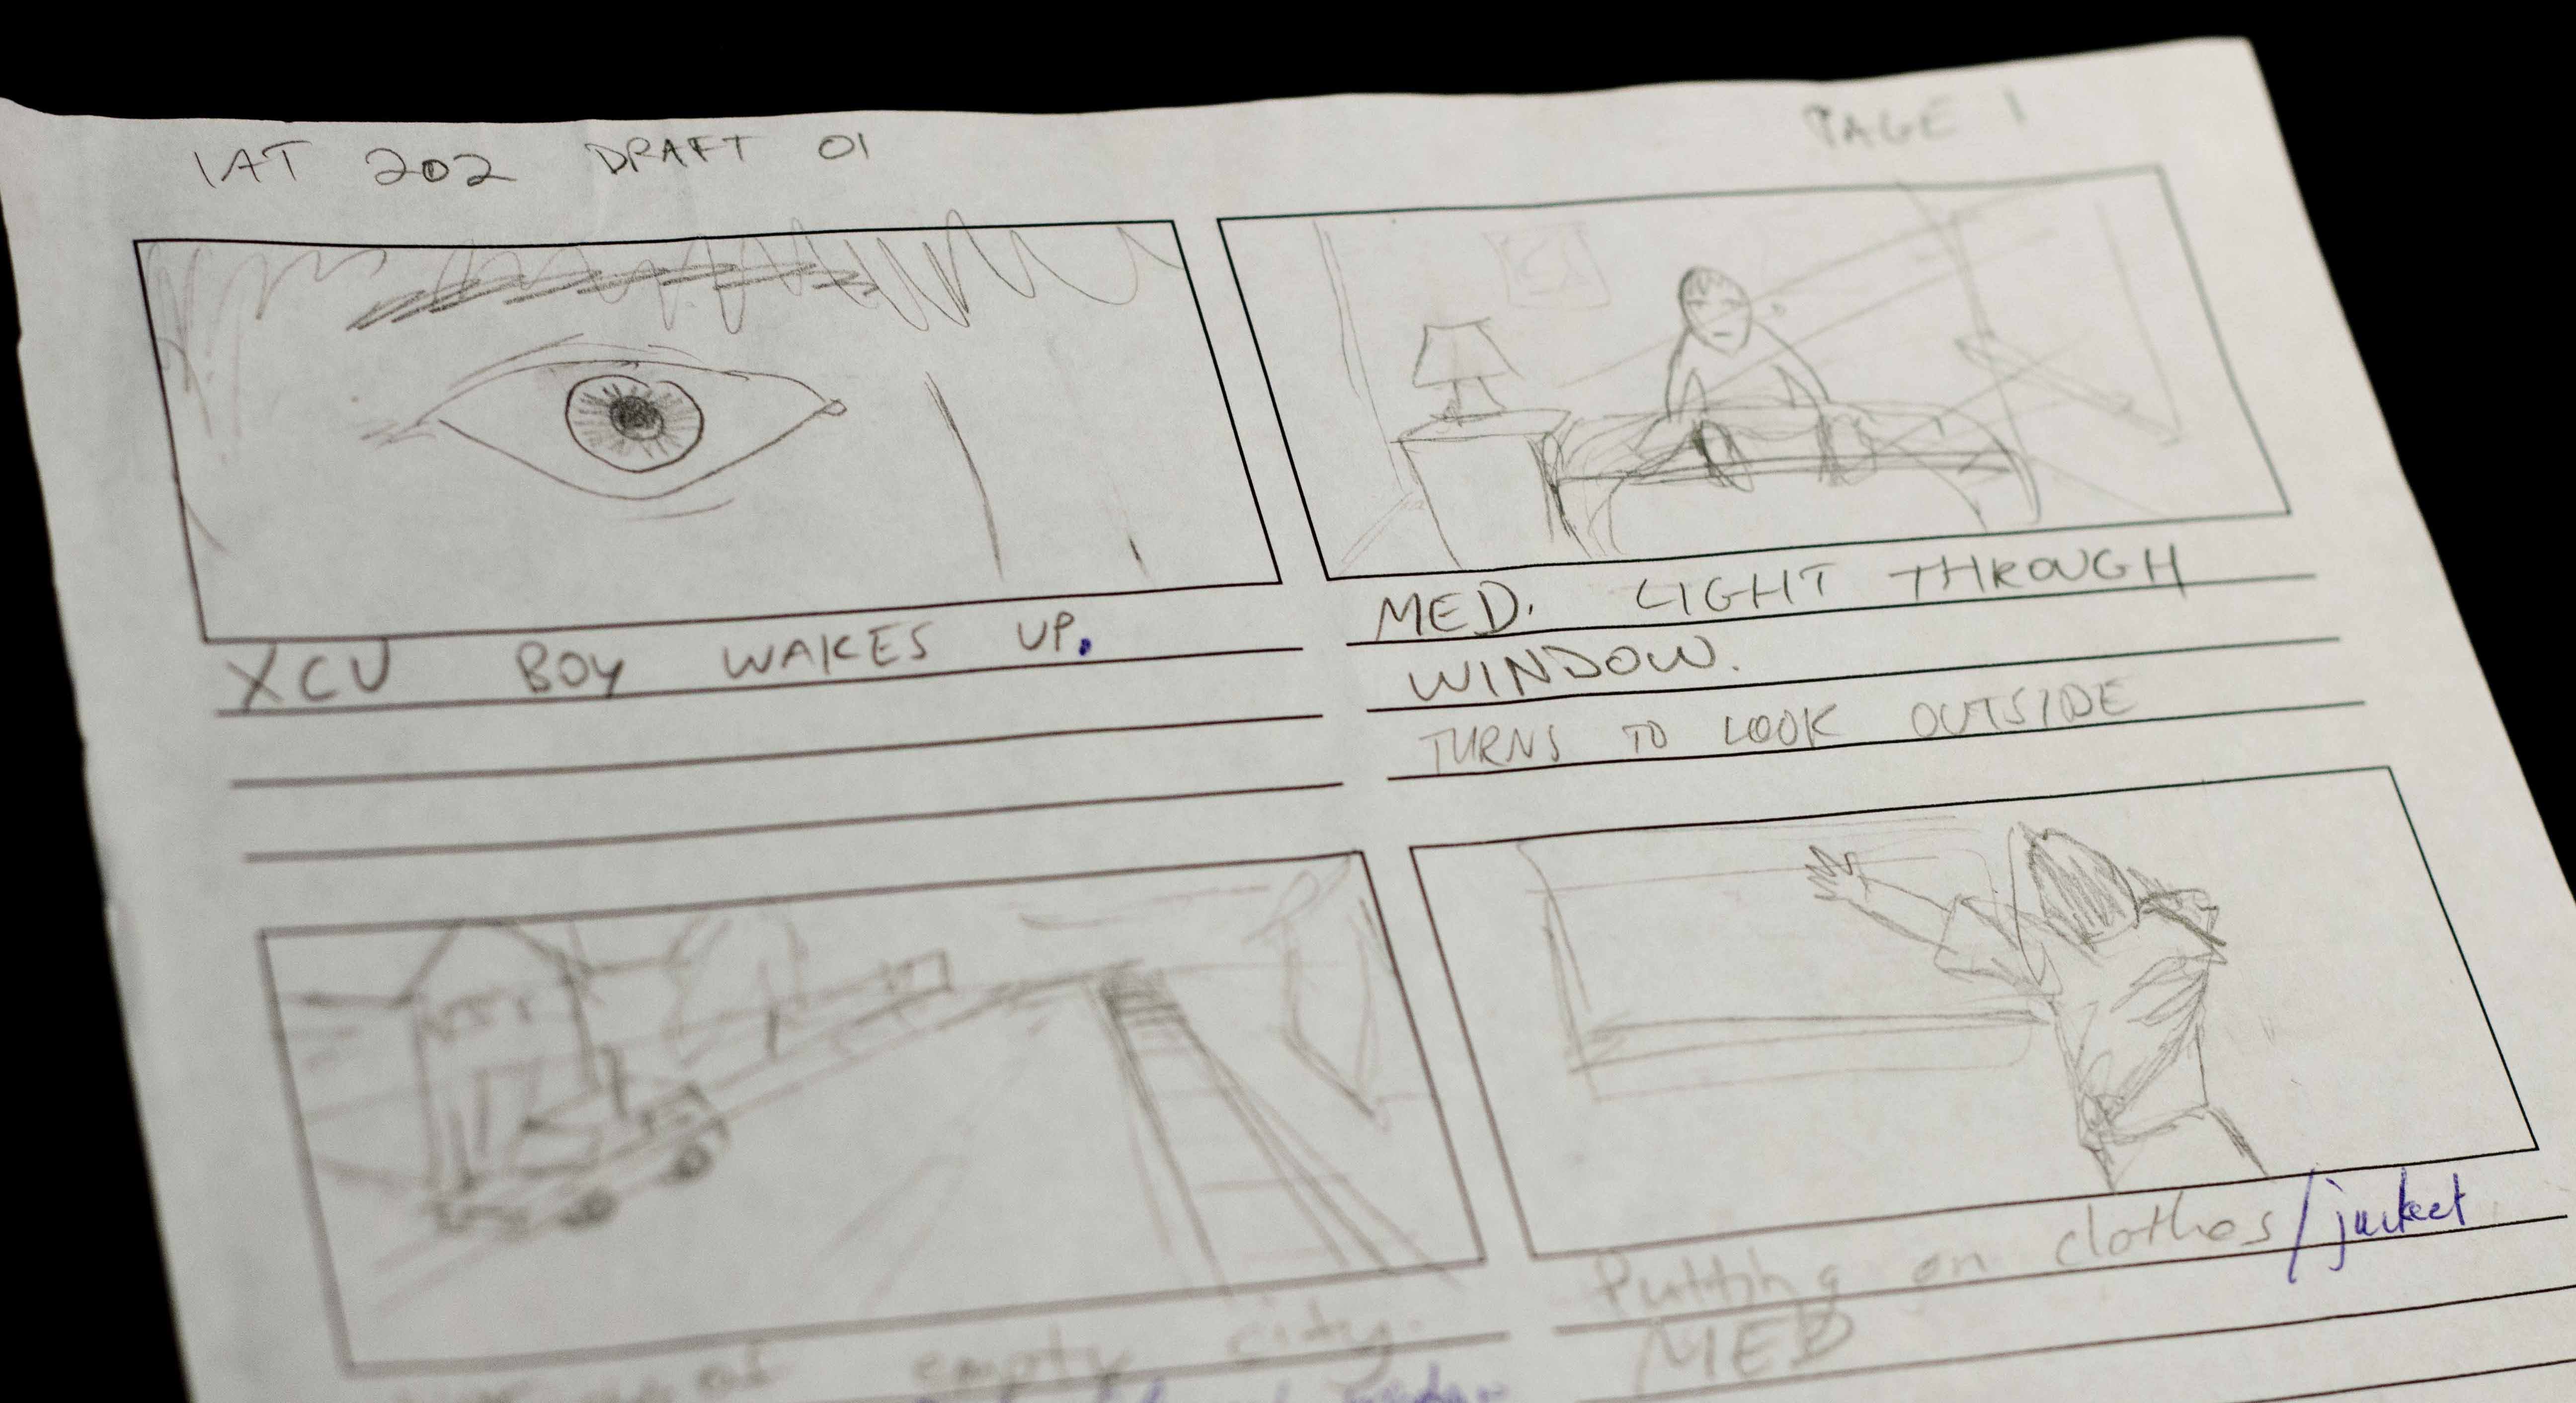 IAT 202 DRAFT 01
PAGE 1
XCU BOY WAKES UP.
MED. LIGHT THROUGH
WINDOW.
TURNS TO LOOK OUTSIDE
of empty city.
Putting on clothes/jacket
MED